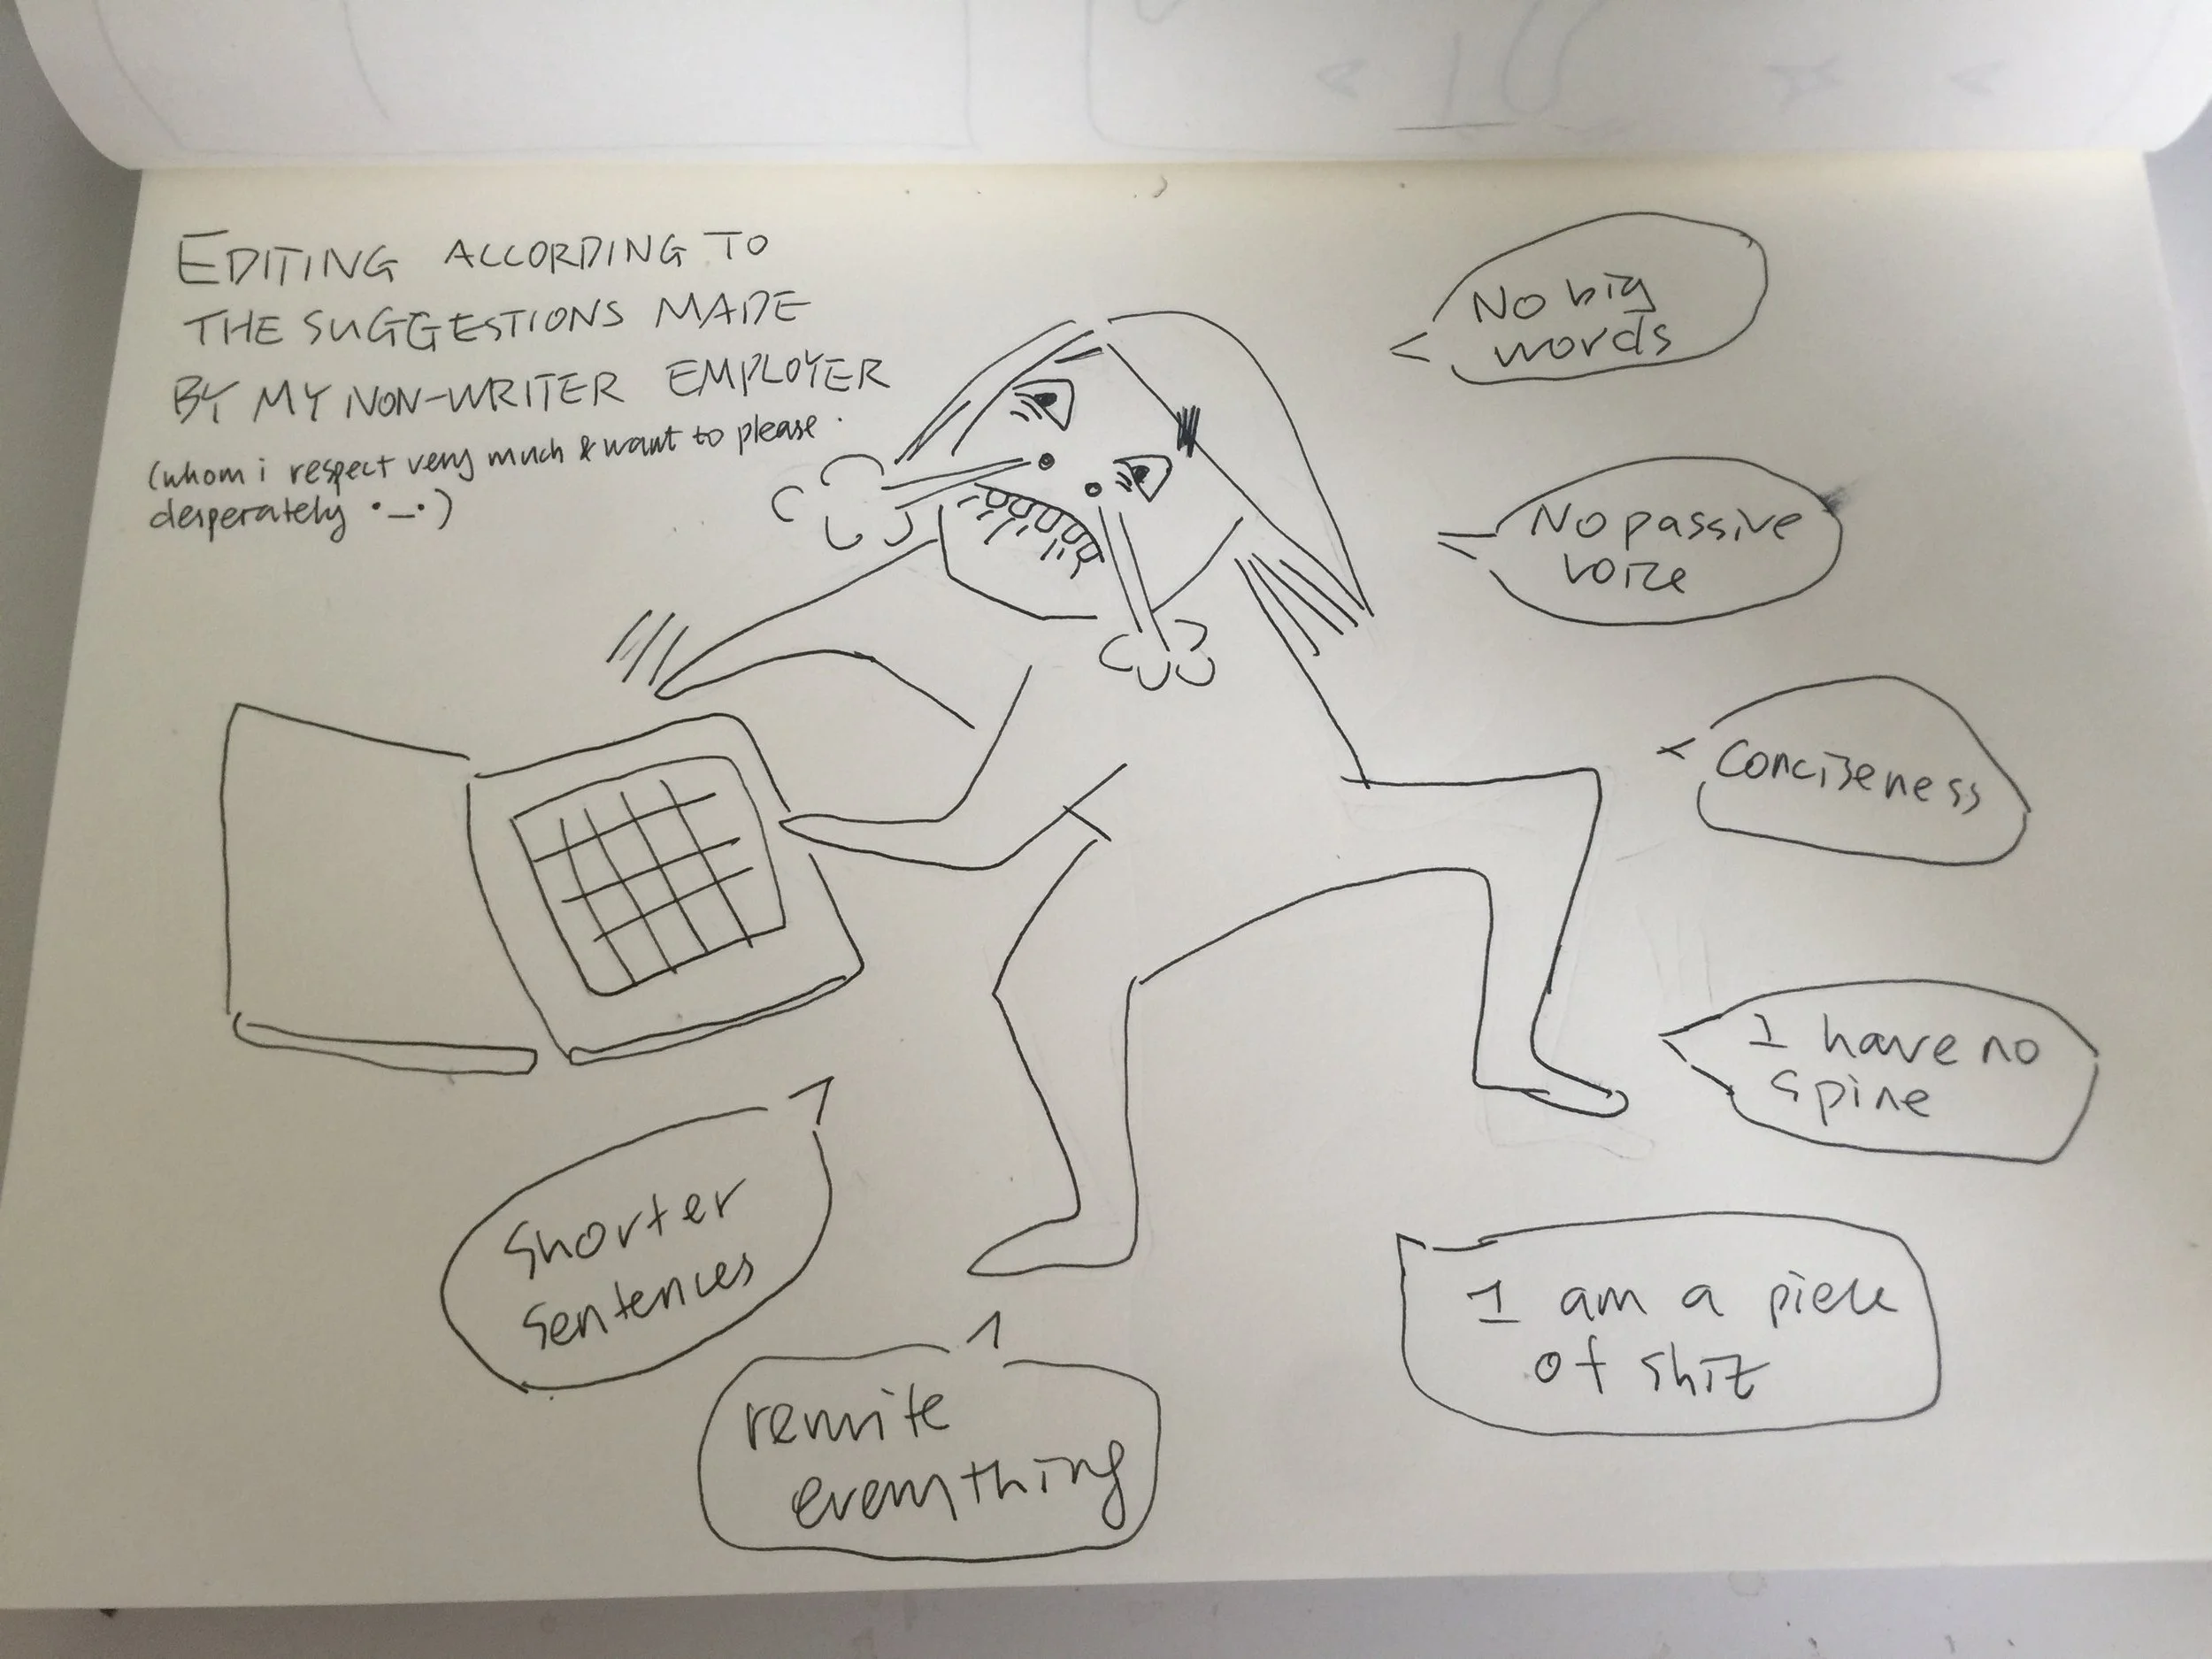 EDITING ACCORDING TO
THE SUGGESTIONS MADE
BY MY NON-WRITER EMPLOYER
(whom i respect very much & want to please
desperately •_•)
No big
words
No passive
voice
Conciseness
I have no
spine
Shorter
sentences
I am a piece
of shit
rewrite
everything